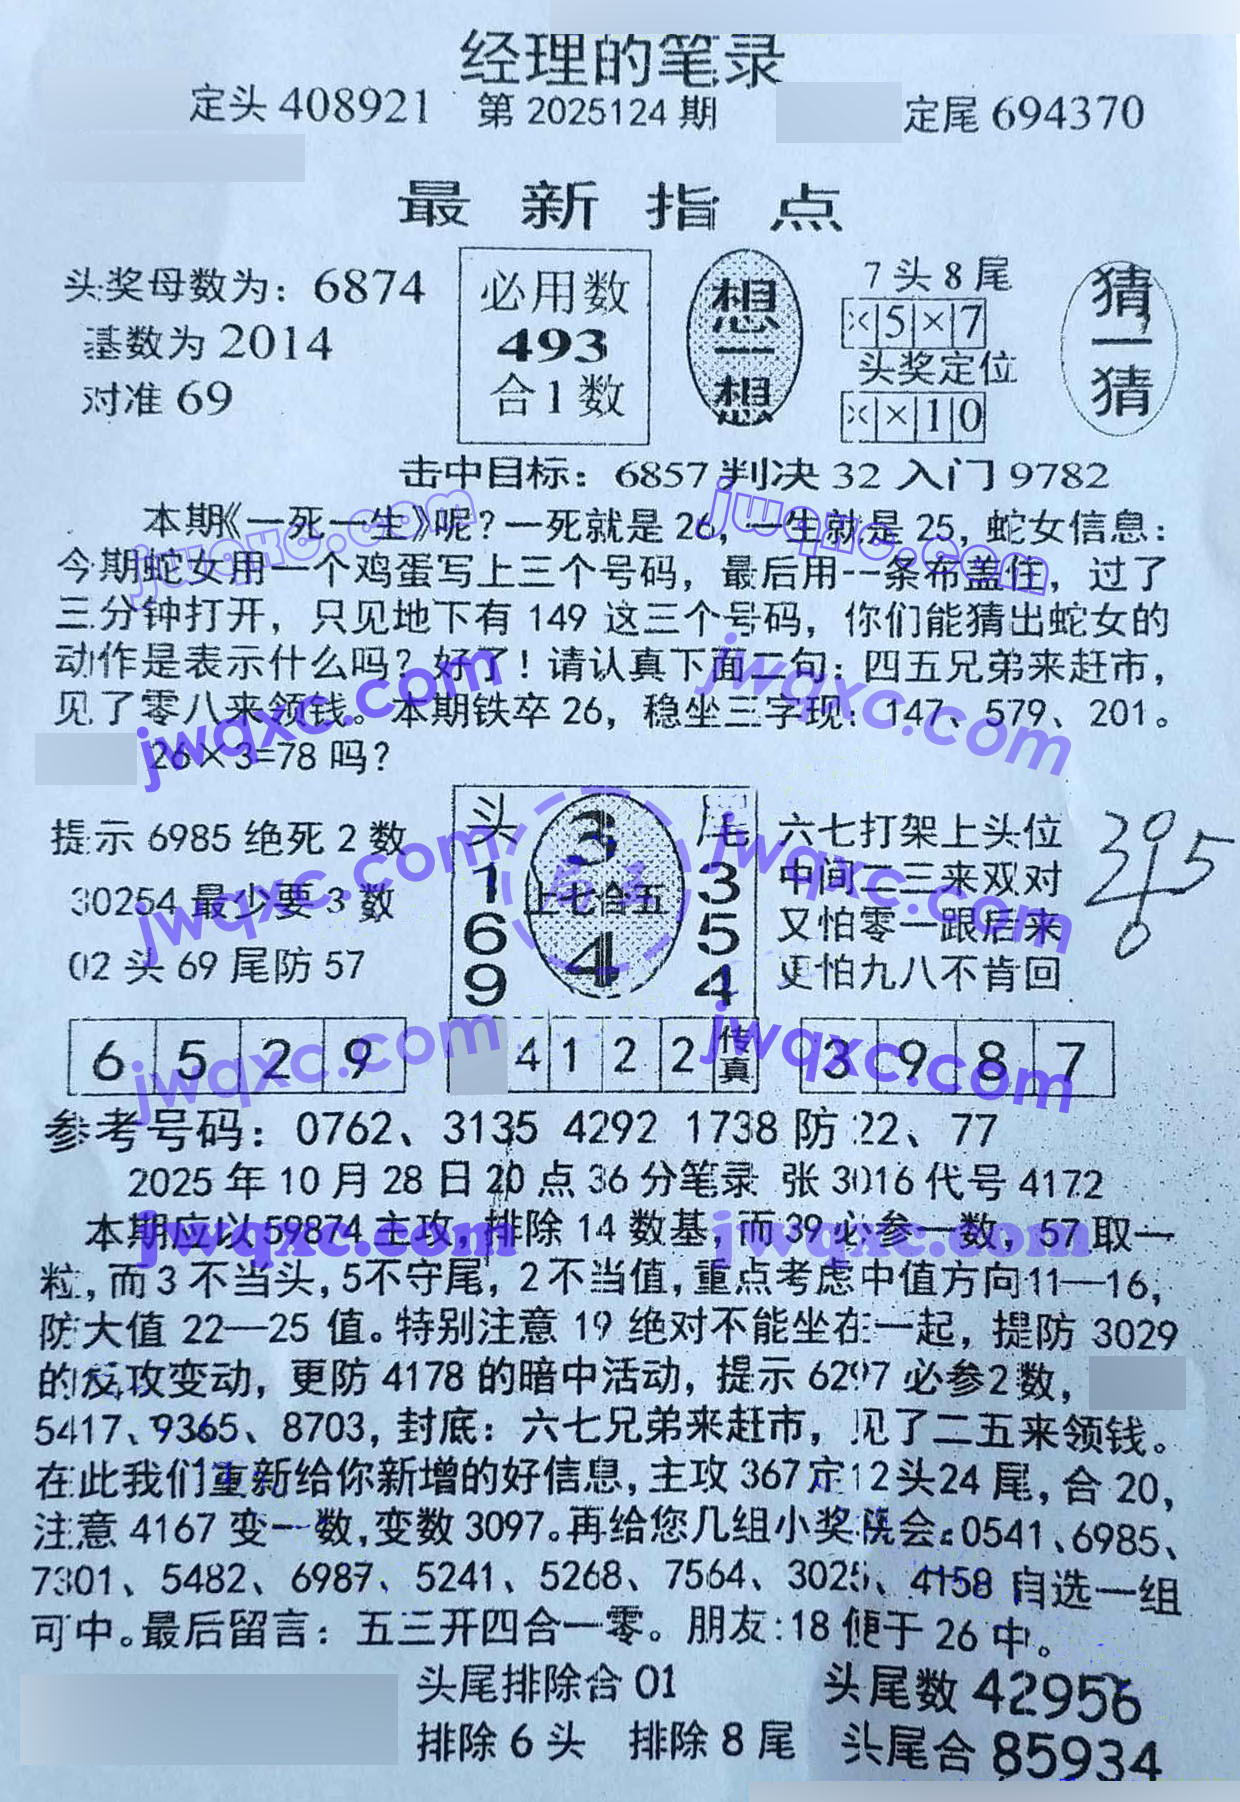 经理的笔录
定头 408921 第 2025124 期 定尾 694370
最新指点
头奖母数为：6874
基数为 2014
对准 69
必用数
493
合1数
想一想
7头8尾
×5×7
头奖定位
××10
猜一猜
击中目标：6857 判决 32 入门 9782
本期《一死一生》呢？一死就是 26，一生就是 25，蛇女信息：
今期蛇女用一个鸡蛋写上三个号码，最后用一条布盖住，过了
三分钟打开，只见地下有 149 这三个号码，你们能猜出蛇女的
动作是表示什么吗？好了！请认真下面二句：四五兄弟来赶市，
见了零八来领钱。本期铁卒 26，稳坐三字现：147、579、201。
26×3=78 吗？
提示 6985 绝死 2 数
30254 最少要 3 数
02 头 69 尾防 57
头 3 尾
1 上七合五 3
6 5
9 4 4
六七打架上头位
中间二三来双对
又怕零一跟后来
更怕九八不肯回
395
6
6 5 2 9
4 1 2 2 传真
3 9 8 7
参考号码：0762、3135 4292 1738 防 22、77
2025 年 10 月 28 日 20 点 36 分笔录 张 3016 代号 4172
本期应以 59874 主攻，排除 14 数基，而 39 必参一数，57 取一
粒，而 3 不当头，5不守尾，2 不当值，重点考虑中值方向11—16，
防大值 22—25 值。特别注意 19 绝对不能坐在一起，提防 3029
的反攻变动，更防 4178 的暗中活动，提示 6297 必参2数，
5417、9365、8703，封底：六七兄弟来赶市，见了二五来领钱。
在此我们重新给你新增的好信息，主攻 367 定12头24 尾，合 20，
注意 4167 变一数，变数 3097。再给您几组小奖 会：0541、6985、
7301、5482、6987、5241、5268、7564、3025、4158 自选一组
可中。最后留言：五三开四合一零。朋友：18 便于 26 中。
头尾排除合 01 头尾数 42956
排除 6 头 排除 8 尾 头尾合 85934
jwqxc.com
jwqxc.com
jwqxc.com
jwqxc.com
jwqxc.com
jwqxc.com
jwqxc.com
jwqxc.com
jwqxc.com
jwqxc.com